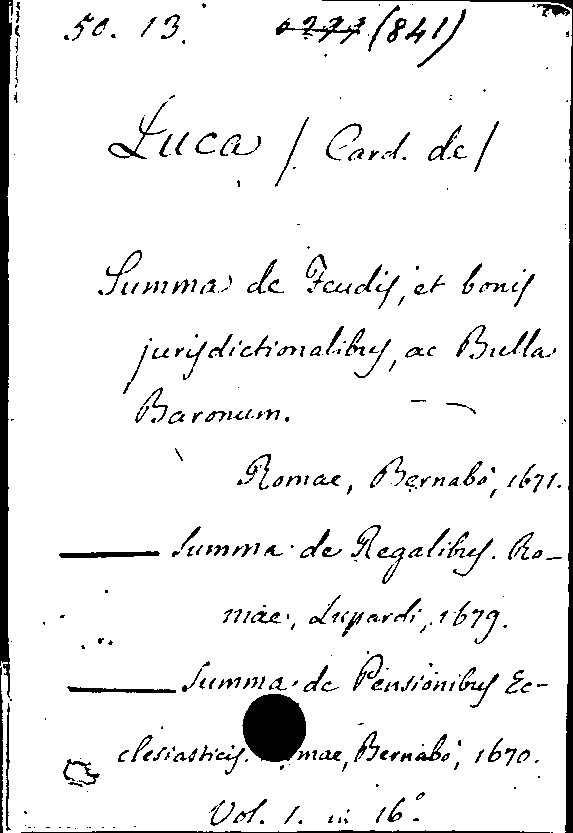 50. 13. 0299 (841)
Luca / Card. de /
Summa de Feudis, et bonis
jurisdictionalibus, ac Bulla
Baronum.
Romae, Bernabò, 1671.
Summa de Regalibus. Ro-
mae, Lupardi, 1679.
Summa de Pensionibus Ec-
clesiasticis. mae, Bernabò, 1670.
Vol. 1. in 16°.